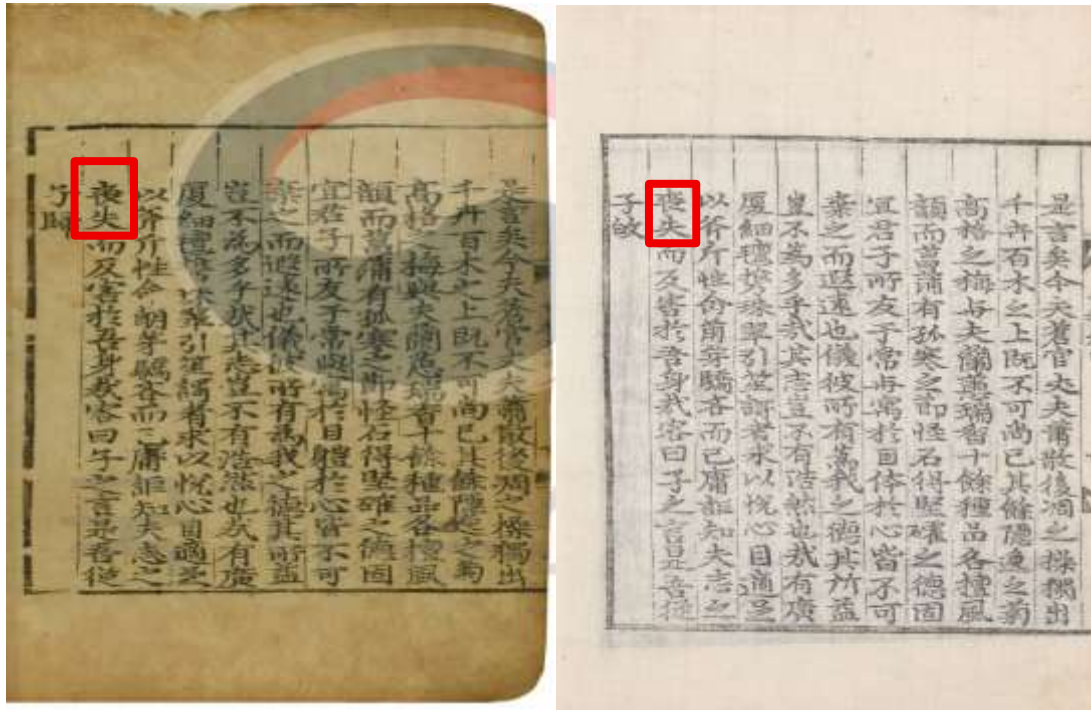 是言矣今夫蒼官大夫蕭散後凋之操獨出
千卉百木之上既不可尚已其餘隱逸之菊
高格之梅與夫蘭蕙瑞香十餘種品各擅風
韻而菖蒲有孤寒之節怪石得堅確之德固
宜君子所友于常與寓於目體於心皆不可
棄之而遐遠也儀彼所有爲我之德其所益
豈不爲多乎哉其志豈不有浩然也哉有廣
廈細氊珠翠引笙謌者求以悅心目適足
以斧斤性命萌芽驕吝而已庸詎知夫志之
喪失而反害於吾身哉客曰子之言是吾從
子
是言矣今夫蒼官大夫蕭散後凋之操獨出
千卉百木之上既不可尚已其餘隱逸之菊
高格之梅与夫蘭蕙瑞香十餘種品各擅風
韻而菖蒲有孤寒之節怪石得堅確之德固
宜君子所友于常与寓於目体於心皆不可
棄之而遐遠也儀彼所有爲我之德其所益
豈不爲多乎哉其志豈不有浩然也哉有廣
廈細氊擁珠翠引笙謌者求以悅心目適足
以斧斤性命萌芽驕吝而已庸詎知夫志之
喪失而反害於吾身哉客曰子之言是吾從
子